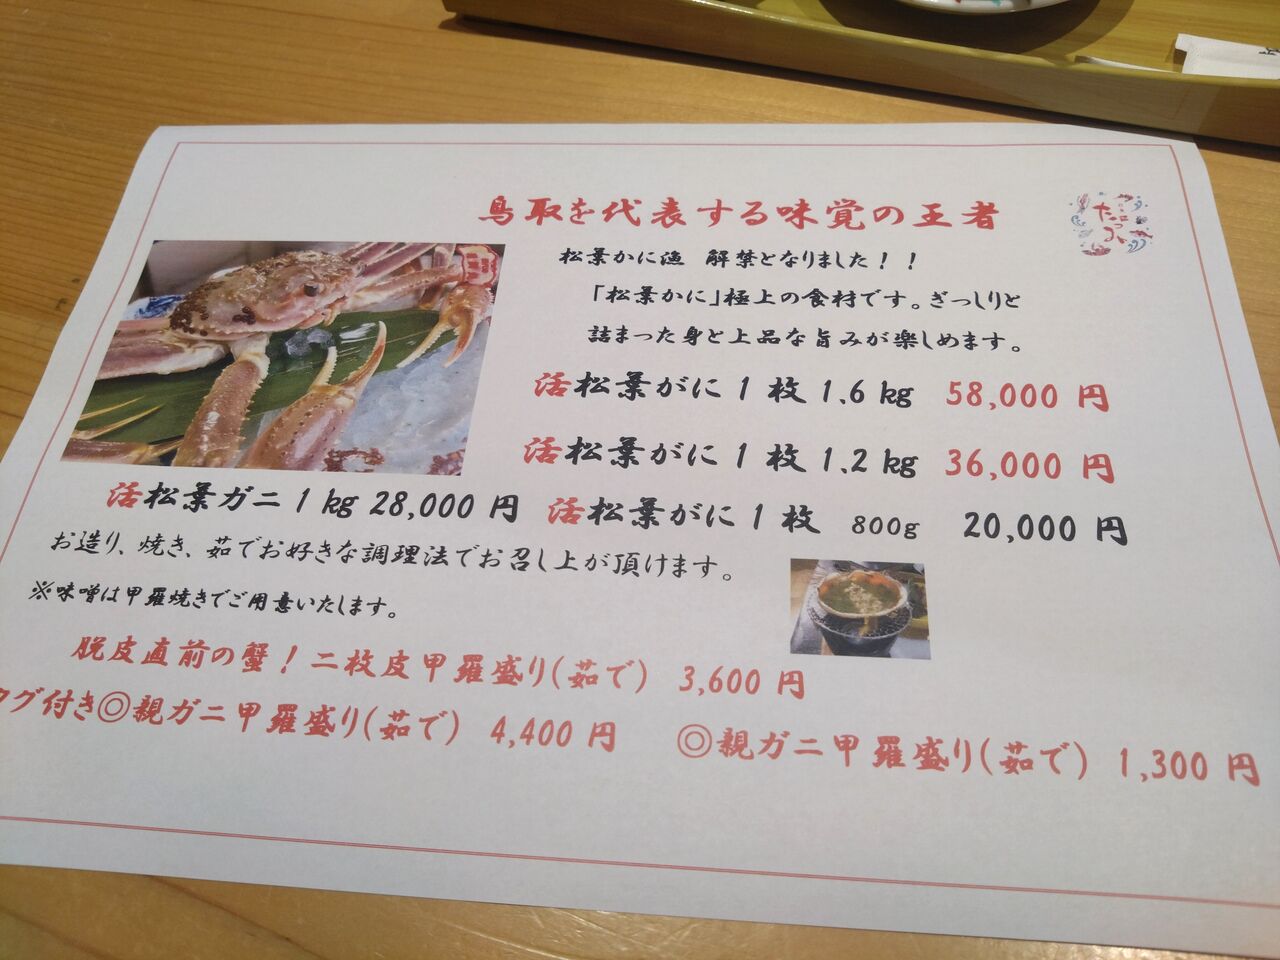 鳥取を代表する味覚の王者
松葉かに漁 解禁となりました！！
「松葉かに」極上の食材です。ぎっしりと
詰まった身と上品な旨みが楽しめます。
活松葉がに1枚1.6kg 58,000円
活松葉がに1枚1.2kg 36,000円
活松葉ガニ1kg 28,000円 活松葉がに1枚 800g 20,000円
お造り、焼き、茹でお好きな調理法でお召し上が頂けます。
※味噌は甲羅焼きでご用意いたします。
脱皮直前の蟹！二枚皮甲羅盛り(茹で) 3,600円
タグ付き◎親ガニ甲羅盛り(茹で) 4,400円 ◎親ガニ甲羅盛り(茹で) 1,300円